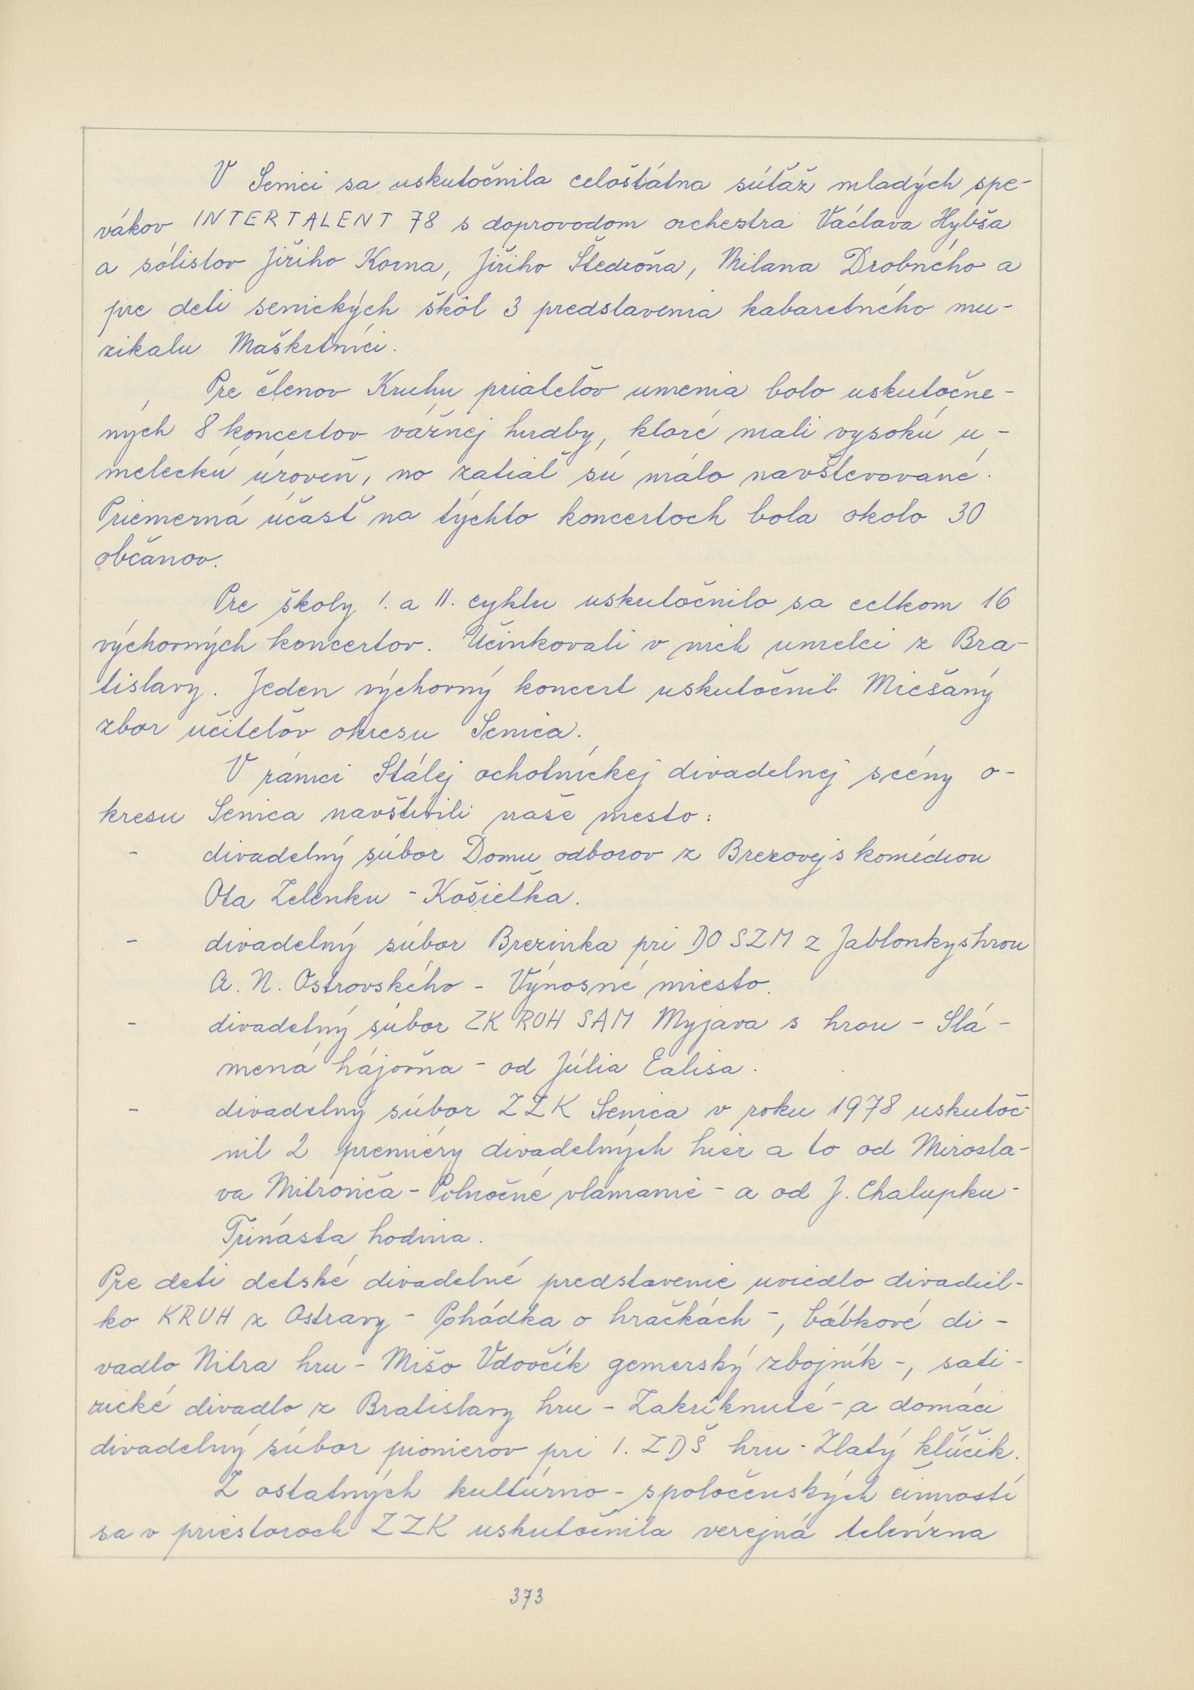 V Senici sa uskutočnila celoštátna súťaž mladých spe-
vákov INTERTALENT 78 s doprovodom orchestra Václava Hybša
a sólistov Jiřiho Korna, Jiřiho Štedroňa, Milana Drobného a
pre deti senických škôl 3 predstavenia kabaretného mu-
zikalu Maškrtníci.
Pre členov Kruhu priateľov umenia bolo uskutočne-
ných 8 koncertov vážnej hudby, ktoré mali vysokú u-
meleckú úroveň, no zatiaľ sú málo navštevované.
Priemerná účasť na týchto koncertoch bola okolo 30
občanov.
Pre školy I. a II. cyklu uskutočnilo sa celkom 16
výchovných koncertov. Učinkovali v nich umelci z Bra-
tislavy. Jeden výchovný koncert uskutočnil Miešaný
zbor učiteľov okresu Senica.
V rámci Stálej ochotníckej divadelnej scény o-
kresu Senica navštívili naše mesto:
- divadelný súbor Domu odborov z Brezovej s komédiou
Ota Zelenku - Košieľka.
- divadelný súbor Brezinka pri DO SZM z Jablonky s hrou
A. N. Ostrovského - Výnosné miesto.
- divadelný súbor ZK ROH SAM Myjava s hrou - Sla-
mená hájovňa - od Júlia Ealisa.
- divadelný súbor ZZK Senica v roku 1978 uskutoč-
nil 2 premiéry divadelných hier a to od Mirosla-
va Mitroviča - Polnočné vlámanie - a od J. Chalupku -
Trinásta hodina.
Pre deti detské divadelné predstavenie uviedlo divadiel-
ko KRUH z Ostravy - Pohádka o hračkách -, bábkové di-
vadlo Nitra hru - Mišo Vdovčík gemerský zbojník -, sati-
rické divadlo z Bratislavy hru - Zakríknuté - a domáci
divadelný súbor pionierov pri I. ZDŠ hru - Zlatý kľúčik.
Z ostatných kultúrno - spoločenských činností
sa v priestoroch ZZK uskutočnila verejná televízna
373